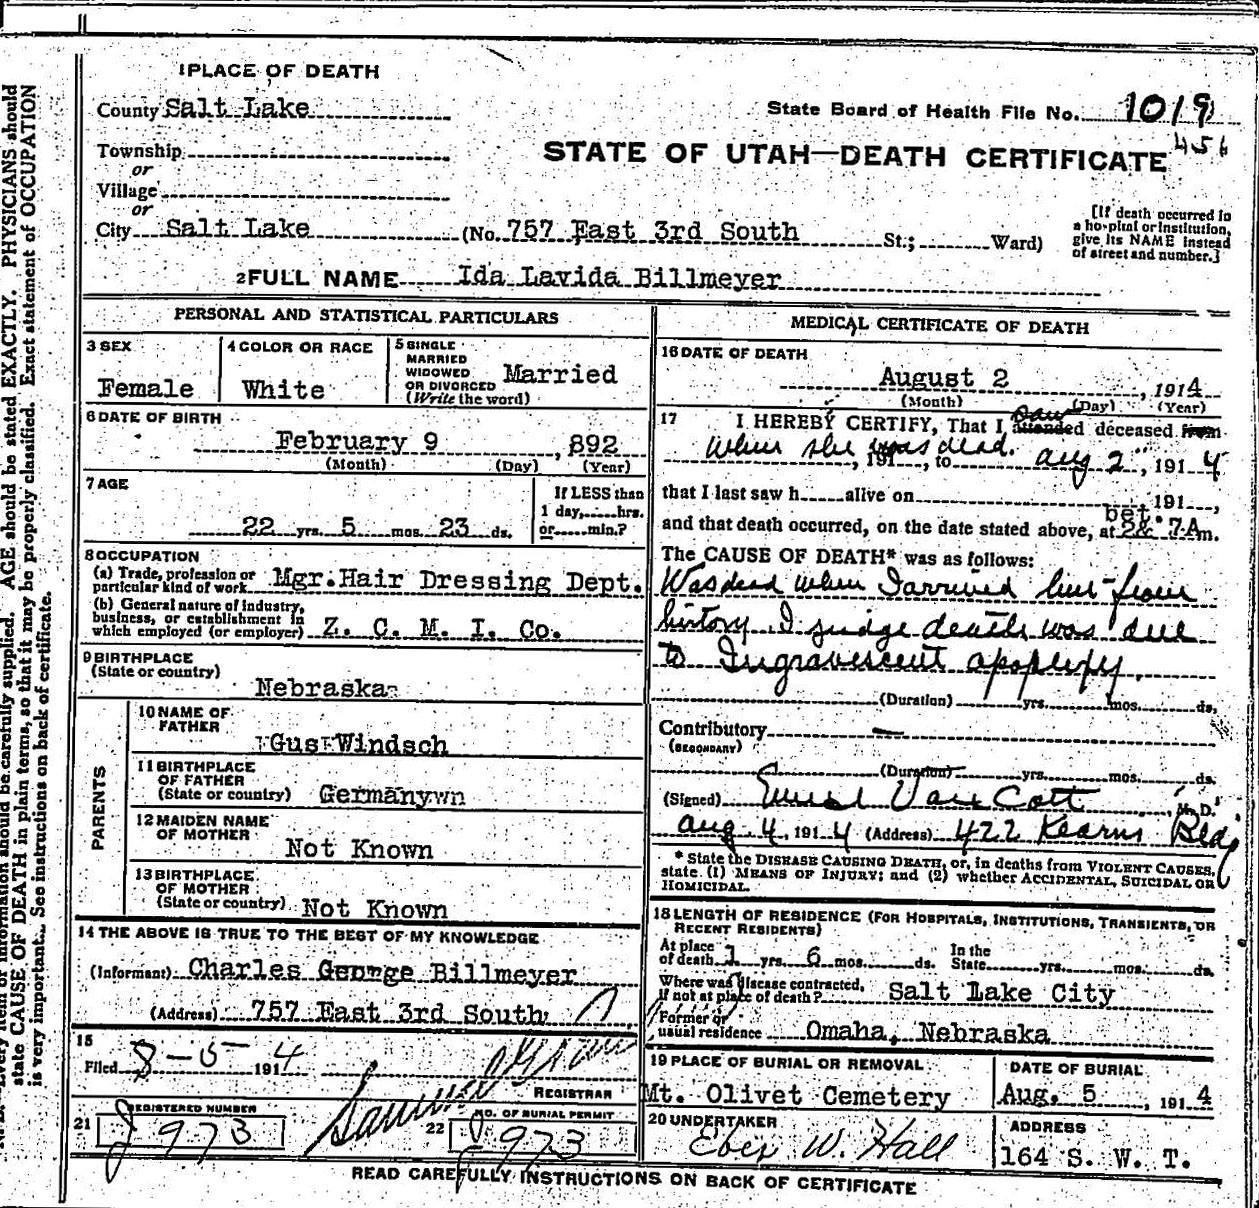 1PLACE OF DEATH
County Salt Lake
State Board of Health File No. 1019
456
Township
or
Village
or
STATE OF UTAH—DEATH CERTIFICATE
City Salt Lake (No. 757 East 3rd South St.; Ward)
[If death occurred in
a hospital or institution,
give its NAME instead
of street and number.]
2FULL NAME Ida Lavida Billmeyer
PERSONAL AND STATISTICAL PARTICULARS
3 SEX
Female
4 COLOR OR RACE
White
5 SINGLE
MARRIED
WIDOWED
OR DIVORCED
(Write the word)
Married
6 DATE OF BIRTH
February 9, 892
(Month) (Day) (Year)
7 AGE
22 yrs. 5 mos. 23 ds.
If LESS than
1 day, hrs.
or min.?
8 OCCUPATION
(a) Trade, profession or
particular kind of work Mgr. Hair Dressing Dept.
(b) General nature of industry,
business, or establishment in
which employed (or employer) Z. C. M. I. Co.
9 BIRTHPLACE
(State or country)
Nebraska
PARENTS
10 NAME OF
FATHER
Gus Windsch
11 BIRTHPLACE
OF FATHER
(State or country) Germanywn
12 MAIDEN NAME
OF MOTHER
Not Known
13 BIRTHPLACE
OF MOTHER
(State or country) Not Known
14 THE ABOVE IS TRUE TO THE BEST OF MY KNOWLEDGE
(Informant) Charles George Billmeyer
(Address) 757 East 3rd South
15
Filed 8-5 1914
REGISTRAR
21 REGISTERED NUMBER
J 973
22 NO. OF BURIAL PERMIT
J 973
MEDICAL CERTIFICATE OF DEATH
16 DATE OF DEATH
August 2, 1914
(Month) (Day) (Year)
17 I HEREBY CERTIFY, That I attended saw deceased from
when she was dead. 191, to aug 2", 1914
that I last saw h alive on 191,
and that death occurred, on the date stated above, at bet 2 & 7 A m.
The CAUSE OF DEATH* was as follows:
Was dead when I arrived but from
history I judge death was due
to Ingravescent apoplexy.
(Duration) yrs. mos. ds.
Contributory —
(SECONDARY)
(Duration) yrs. mos. ds.
(Signed) Ernest Van Cott, M. D.
aug 4, 1914 (Address) 422 Kearns Bldg
* State the DISEASE CAUSING DEATH, or, in deaths from VIOLENT CAUSES,
state (1) MEANS OF INJURY; and (2) whether ACCIDENTAL, SUICIDAL OR
HOMICIDAL.
18 LENGTH OF RESIDENCE (FOR HOSPITALS, INSTITUTIONS, TRANSIENTS, OR
RECENT RESIDENTS)
At place
of death 1 yrs. 6 mos. ds.
In the
State yrs. mos. ds.
Where was disease contracted,
if not at place of death? Salt Lake City
Former or
usual residence Omaha, Nebraska
19 PLACE OF BURIAL OR REMOVAL
Mt. Olivet Cemetery
DATE OF BURIAL
Aug. 5, 1914
20 UNDERTAKER
Eber W. Hall
ADDRESS
164 S. W. T.
READ CAREFULLY INSTRUCTIONS ON BACK OF CERTIFICATE
Every item of information should be carefully supplied. AGE should be stated EXACTLY. PHYSICIANS should
state CAUSE OF DEATH in plain terms, so that it may be properly classified. Exact statement of OCCUPATION
is very important. See instructions on back of certificate.